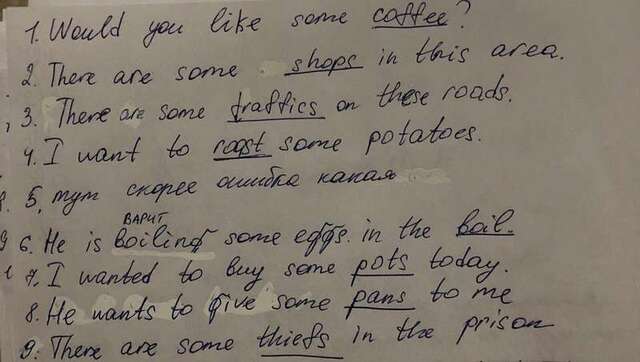 1. Would you like some coffee?
2. There are some shops in this area.
3. There are some traffics on these roads.
4. I want to roast some potatoes.
5. тут скорее ошибка какая
варит
6. He is boiling some eggs. in the boil.
7. I wanted to buy some pots today.
8. He wants to give some pans to me
9. There are some thiefs in the prison